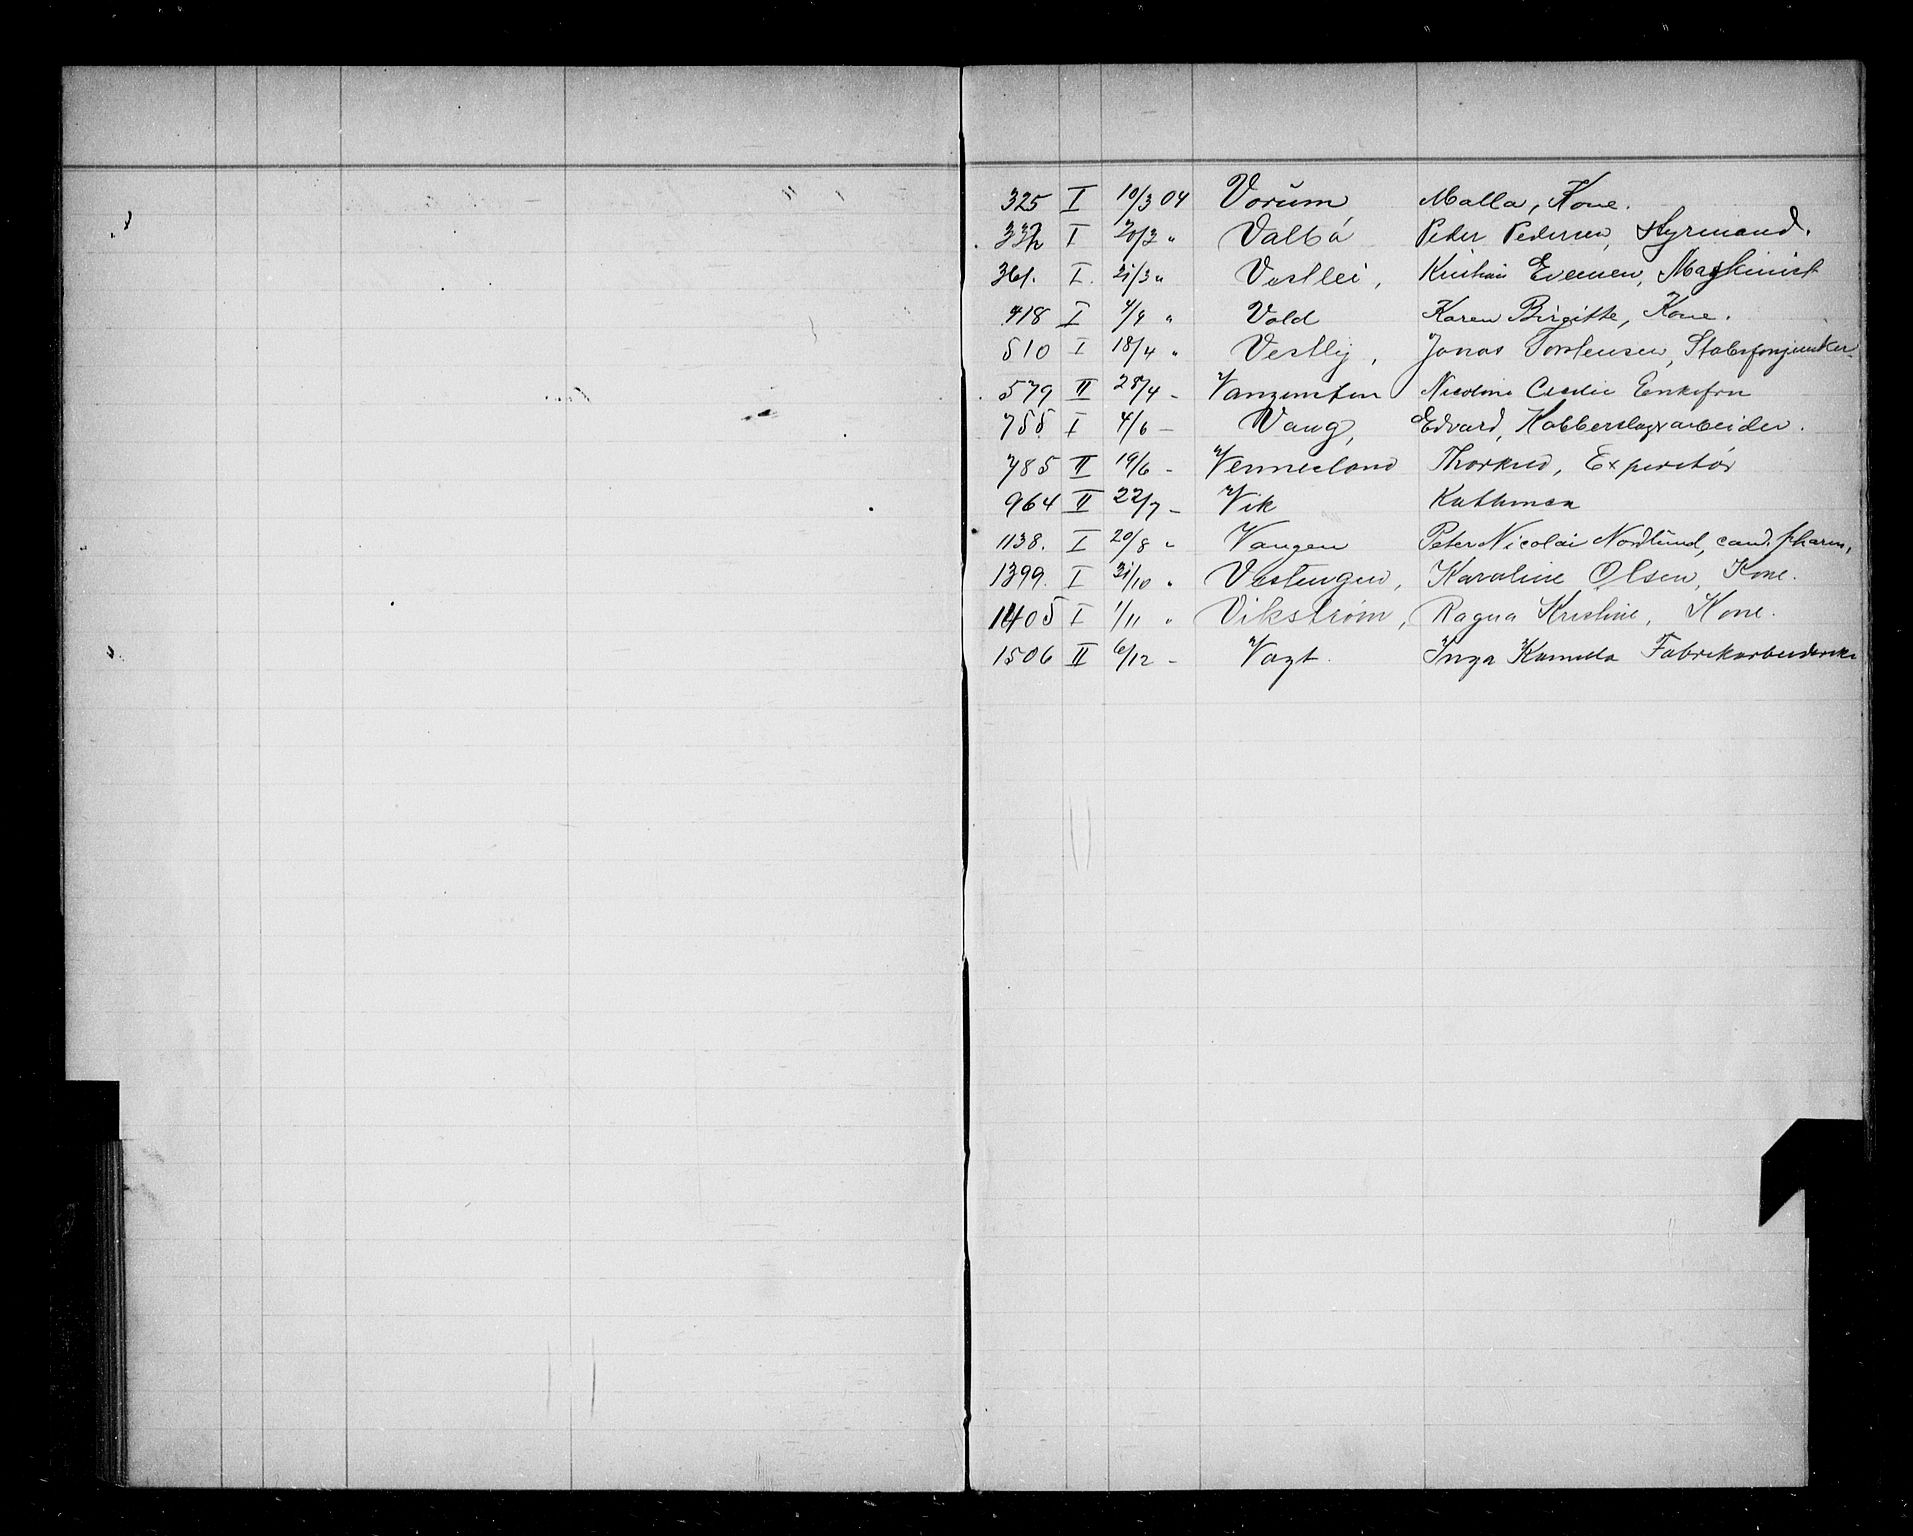 325 I 10/3 04 Vorum, Malla, Kone.
332 I 20/3 " Valbö Peder Pedersen, Styrmand.
361. I. 21/3 " Vestlei, Kristian Evensen, Maskinist
418 I 4/4 " Vold Karen Birgitte, Kone.
510 I 18/4 " Vestly, Jonas Torstensen, Stabsfanejunker
579 II 28/4 - Nicoline Cecilie Enkefru
755 I 4/6 - Vang, Edvard, Kobberslagerarbeider.
785 II 19/6 - Vennesland Expeditør
964 II 22/7 - Vik Kathinca
1138. I 20/8 " Vangen Peter Nicolai Nordlund, cand. pharm,
1399. I 31/10 " Vestengen, Karoline Olsen, Kone.
1405 I 1/11 " Vikstrøm, Ragna Kristine, Kone.
1506 II 6/12 - Vogt. Inga Kamilla Fabrikarbeiderske